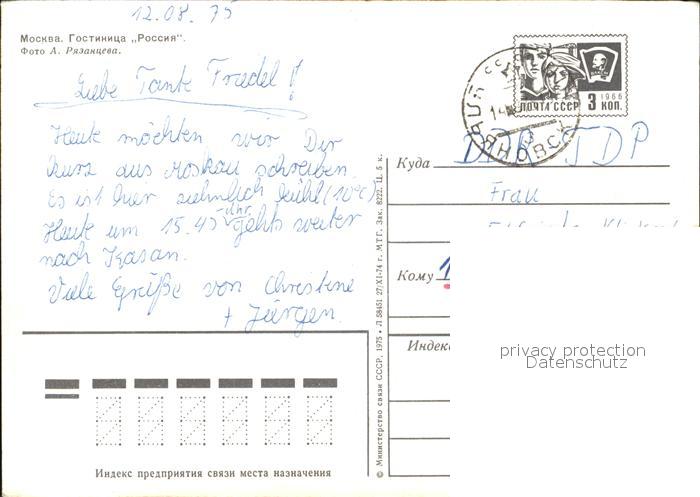 12.08.75
Москва. Гостиница „Россия".
Фото А. Рязанцева.
Liebe Tante Friedel!
Heute möchten wir Dir
kurz aus Moskau schreiben.
Es ist hier ziehmlich kühl (10°C)
Heute um 15.45 Uhr gehts weiter
nach Kasan.
Viele Grüße von Christine
+ Jürgen.
ПОЧТА СССР 3 КОП.
1966
Куда DDR ГДР
Frau
Кому
Индекс
privacy protection
Datenschutz
© Министерство связи СССР, 1975 • Л 58451 27/XI-74 г. МТГ. Зак. 8222. Ц. 5 к.
Индекс предприятия связи места назначения